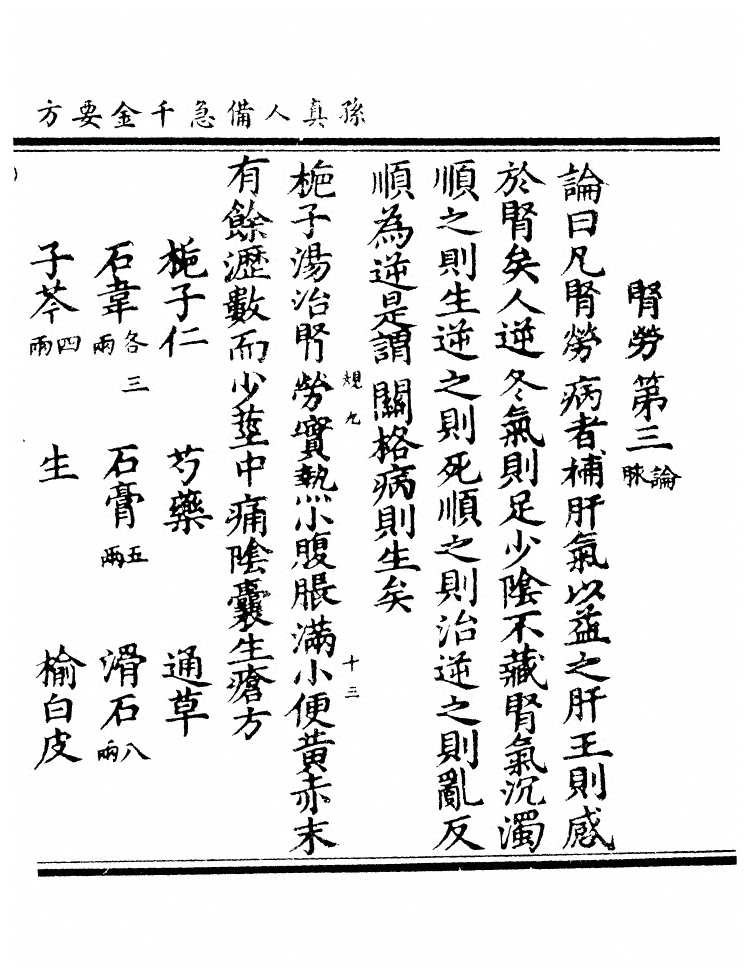 孫真人備急千金要方
腎勞第三論脉
論曰凡腎勞病者補肝氣以益之肝王則感
於腎矣人逆冬氣則足少陰不藏腎氣沉濁
順之則生逆之則死順之則治逆之則亂反
順為逆是謂關格病則生矣
規九
十三
梔子湯治腎勞實熱小腹脹滿小便黃赤末
有餘瀝數而少莖中痛陰囊生瘡方
梔子仁 芍藥 通草
石韋各三兩 石膏五兩 滑石八兩
子芩四兩 生 榆白皮